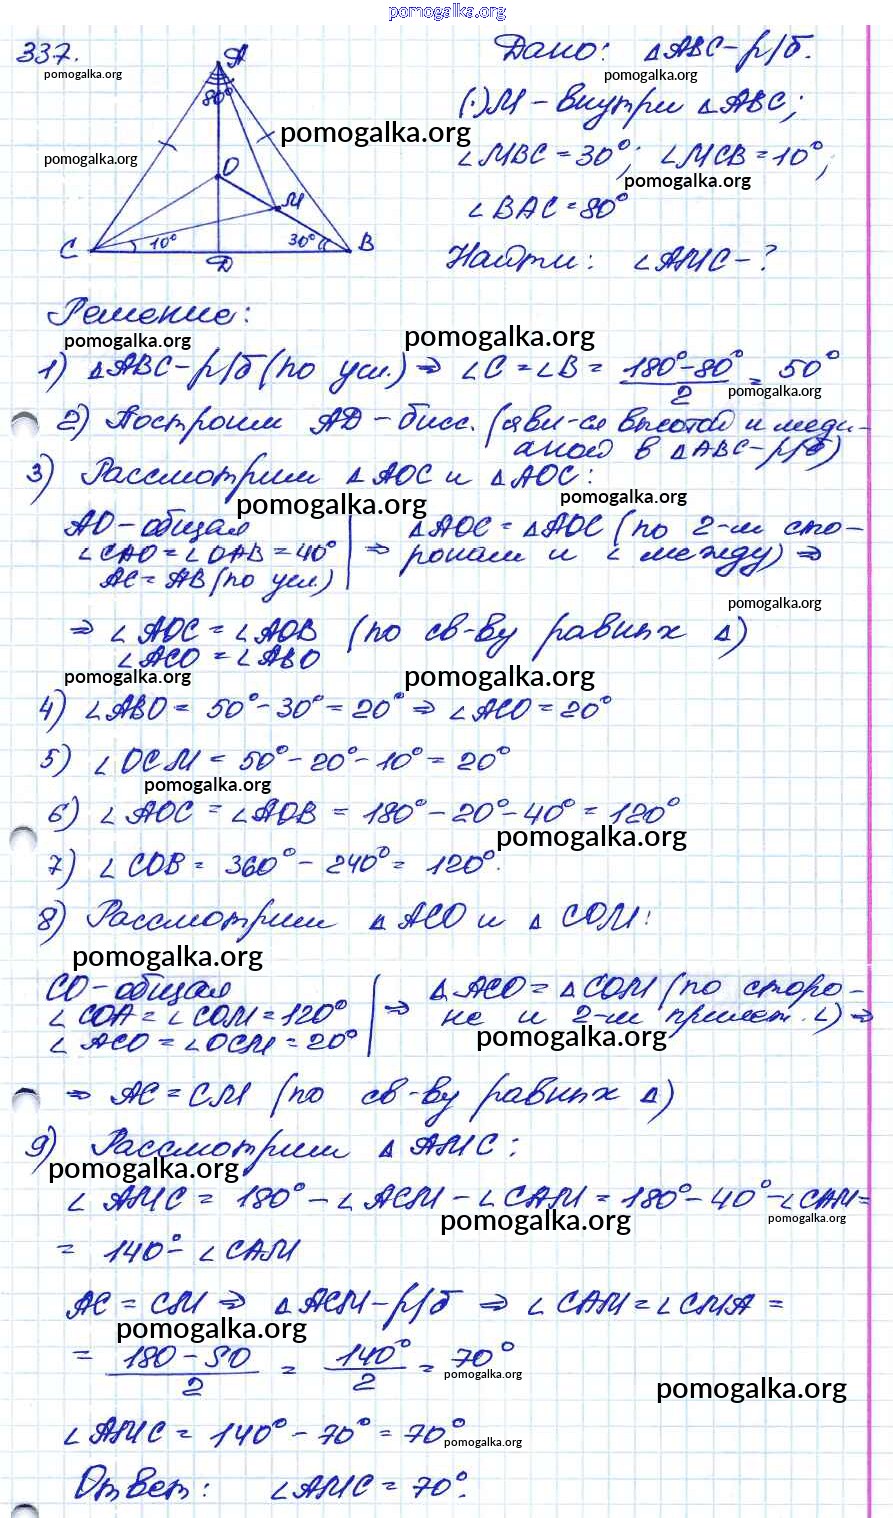 pomogalka.org
337.
pomogalka.org
A
80°
O
M
C
10°
30°
B
D
pomogalka.org
pomogalka.org
Дано: △ABC-р/б.
pomogalka.org
(·)M - внутри △ABC;
∠MBC = 30°; ∠MCB = 10°,
pomogalka.org
∠BAC = 80°
Найти: ∠AMC - ?
Решение:
pomogalka.org pomogalka.org
1) △ABC-р/б (по усл.) ⇒ ∠C = ∠B = 180°-80°/2 = 50°
pomogalka.org
2) Построим AD - бисс. (яви-ся высотой и меди-
аной в △ABC-р/б)
3) Рассмотрим △AOC и △AOC:
pomogalka.org pomogalka.org
AO - общая
∠CAO = ∠OAB = 40°
AC = AB (по усл.)
⇒ △AOC = △AOC (по 2-м сто-
ронам и ∠ между) ⇒
pomogalka.org
⇒ ∠AOC = ∠AOB (по св-ву равных △)
∠ACO = ∠ABO
pomogalka.org pomogalka.org
4) ∠ABO = 50° - 30° = 20° ⇒ ∠ACO = 20°
5) ∠OCM = 50° - 20° - 10° = 20°
pomogalka.org
6) ∠AOC = ∠AOB = 180° - 20° - 40° = 120°
pomogalka.org
7) ∠COB = 360° - 240° = 120°.
8) Рассмотрим △ACO и △COM:
pomogalka.org
CO - общая
∠COA = ∠COM = 120°
∠ACO = ∠OCM = 20°
⇒ △ACO = △COM (по сторо-
не и 2-м прилеж. ∠) ⇒
pomogalka.org
⇒ AC = CM (по св-ву равных △)
9) Рассмотрим △AMC:
pomogalka.org
∠AMC = 180° - ∠ACM - ∠CAM = 180° - 40° - ∠CAM =
pomogalka.org pomogalka.org
= 140° - ∠CAM
AC = CM ⇒ △ACM - р/б ⇒ ∠CAM = ∠CMA =
pomogalka.org
= 180 - 50/2 = 140°/2 = 70°
pomogalka.org
pomogalka.org
∠AMC = 140° - 70° = 70°
pomogalka.org
Ответ: ∠AMC = 70°.